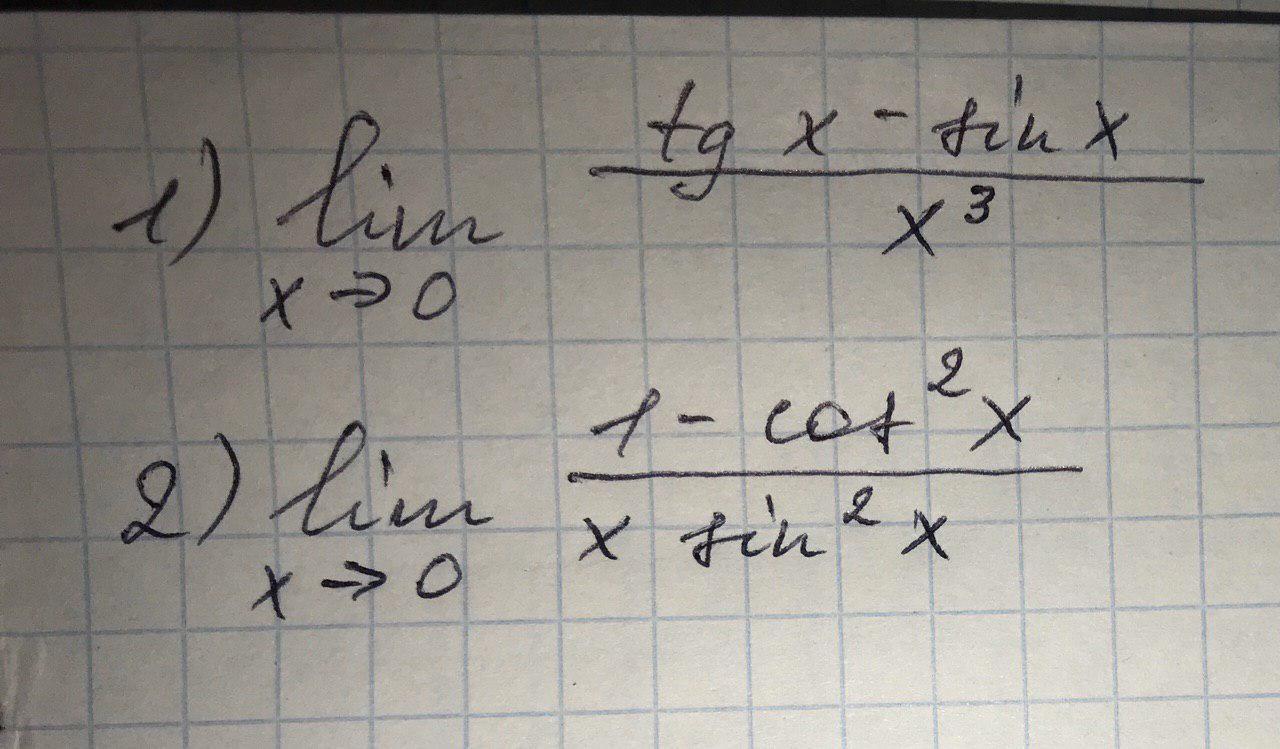 1) lim x→0 (tg x - sin x) / x³
2) lim x→0 (1 - cos² x) / (x sin² x)